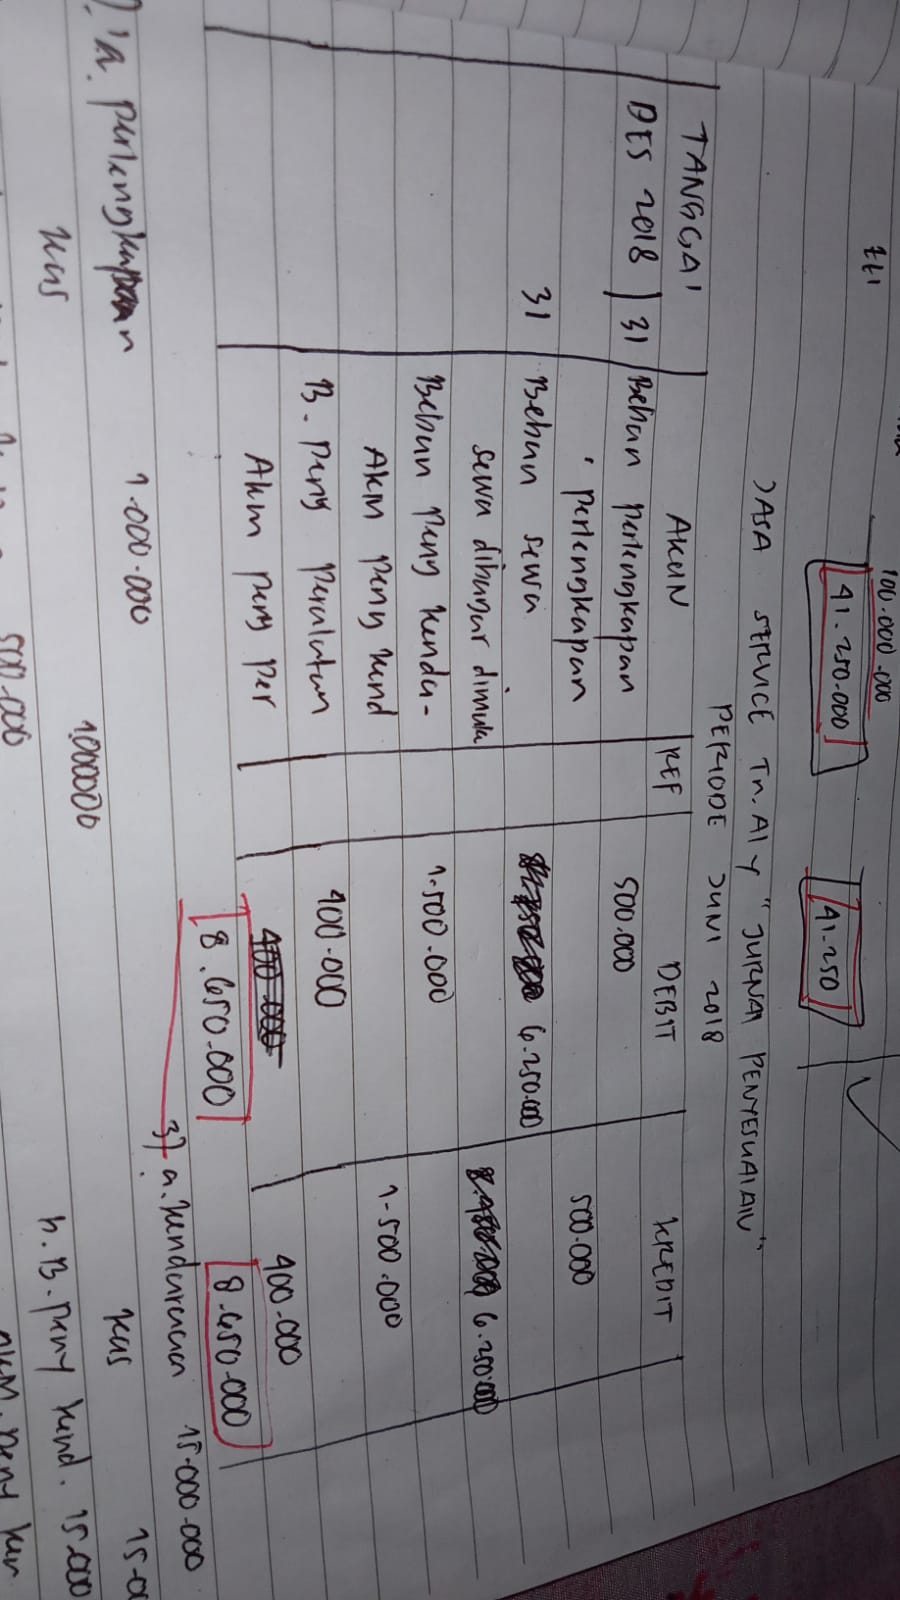 100.000.000
41.250.000 41.250
JASA SERVICE Tn. Aly "JURNAL PENYESUAIAN"
PERIODE JUNI 2018
TANGGAL AKUN REF DEBIT KREDIT
DES 2018 31 Beban perlengkapan 500.000
perlengkapan 500.000
31 Beban sewa 6.250.000
sewa dibayar dimuka 6.250.000
Beban peny kenda- 1.500.000
Akm peny kend 1.500.000
B. peny peralatan 400.000
Akm peny per 400.000 400.000
8.650.000 8.650.000
37 a. kendaraaan 15.000.000
a. perlengkapan 1.000.000
kas 15.00
1000000
kas
b. B. peny kend. 15.000
500.000
AKM. peny ken